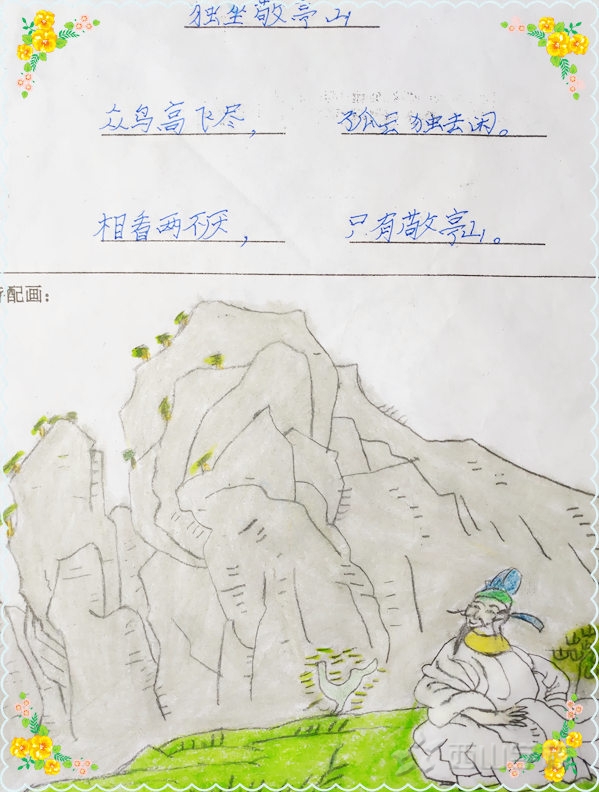 独坐敬亭山
众鸟高飞尽， 孤云独去闲。
相看两不厌， 只有敬亭山。
配画：
西山